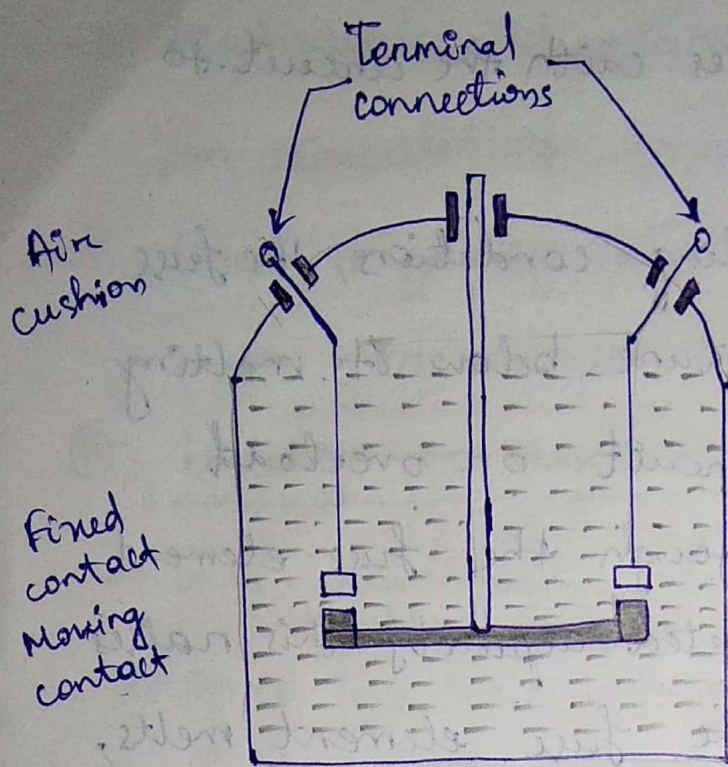 Terminal
connections
Air
cushion
Fixed
contact
Moving
contact